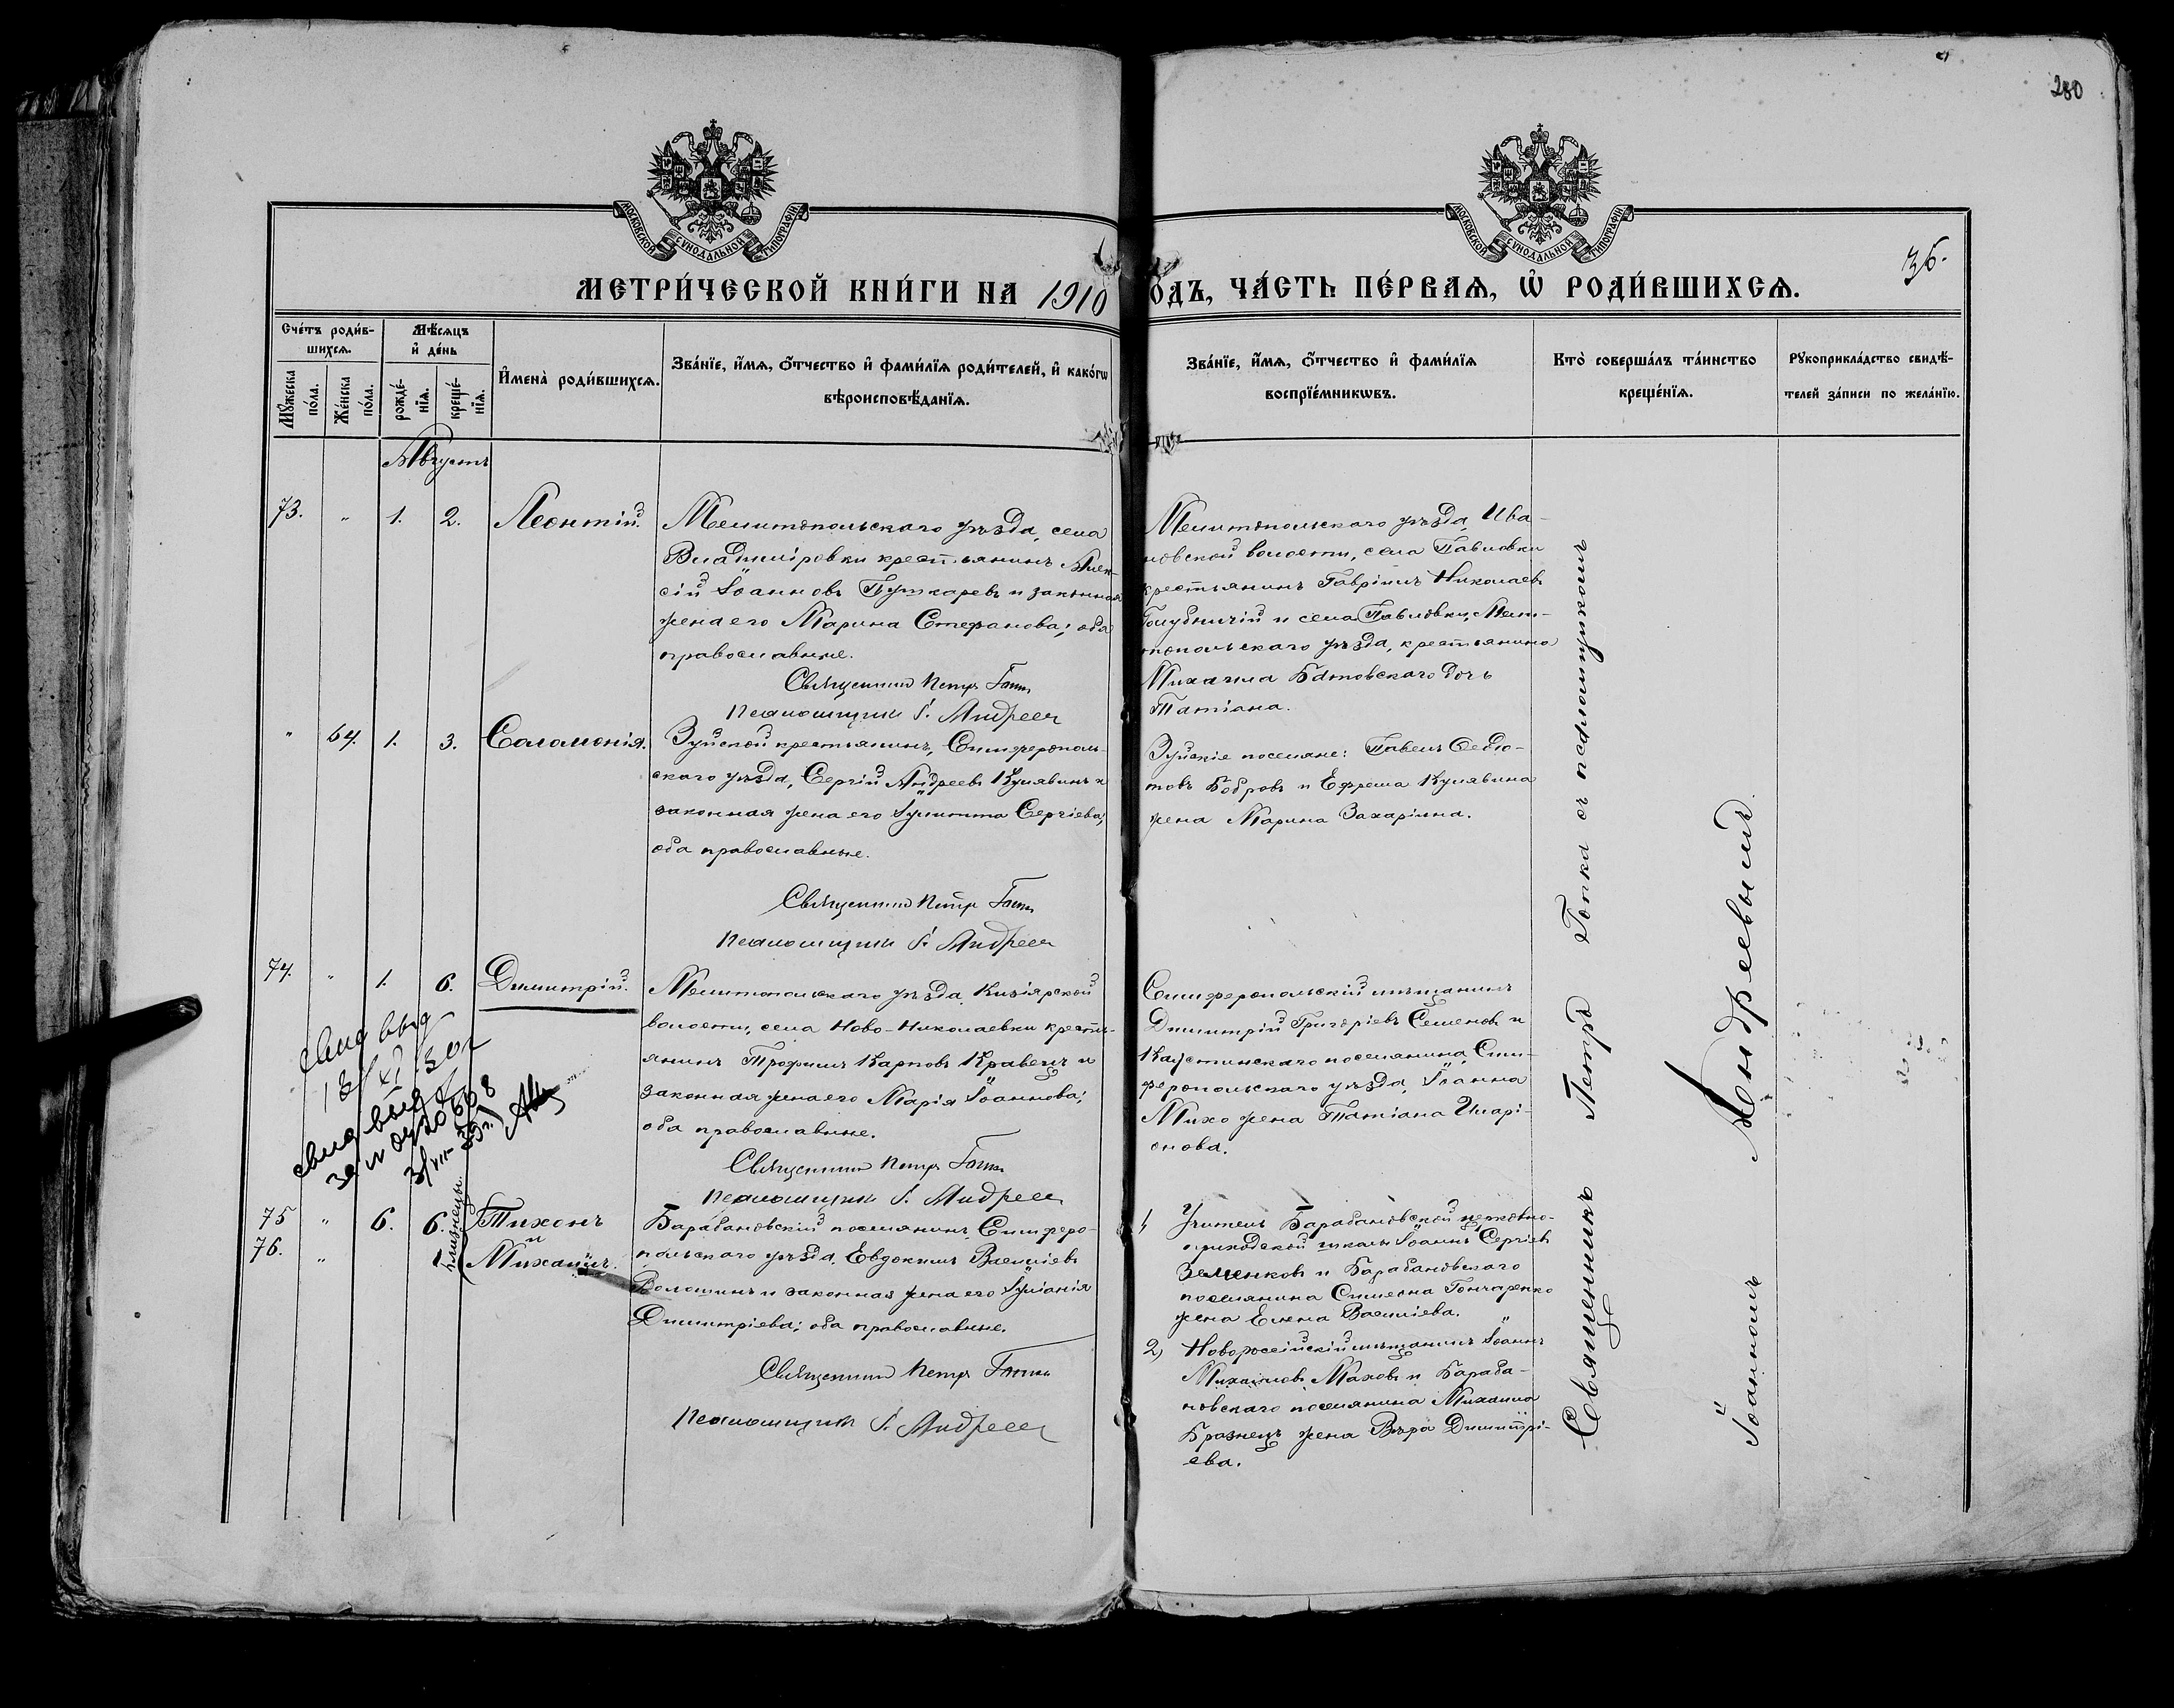 280
МОСКОВСКОЙ СУНОДАЛЬНОЙ ТИПОГРАФІИ
МОСКОВСКОЙ СУНОДАЛЬНОЙ ТИПОГРАФІИ
36.
МЕТРИ́ЧЕСКОЙ КНИ́ГИ НА 1910
ОДЪ, ЧА́СТЬ ПЕ́РВАѦ, Ѡ҆ РОДИ́ВШИХСѦ.
Сче́тъ роди́в-
шихсѧ.
Мꙋ́жеска по́ла.
Же́нска по́ла.
Мѣ́сѧцъ
и҆ де́нь
рожде́-
нїѧ.
креще́-
нїѧ.
И҆мена̀ роди́вшихсѧ.
Зва́нїе, и҆́мѧ, ѻ҆́тчество и҆ фами́лїѧ роди́телей, и҆ како́гѡ
вѣроисповѣ́данїѧ.
Зва́нїе, и҆́мѧ, ѻ҆́тчество и҆ фами́лїѧ
воспрїе́мникѡвъ.
Кто̀ соверша́лъ та́инство
креще́нїѧ.
Рꙋкоприкла́дство свидѣ́-
телей за́писи по жела́нїю.
Августъ
73. " 1. 2. Леонтій.
Мелитопольскаго уѣзда, села
Владиміровки крестьянинъ Алек-
сій Іоанновъ Пушкаревъ и законная
жена его Марина Стефанова; оба
православные.
Священникъ Петръ Гопка
Псаломщикъ І. Андреев
Мелитопольскаго уѣзда, Ива-
новской волости, села Павловки
крестьянинъ Гавріилъ Николаевъ
Голубничій и села Павловки, Мели-
топольскаго уѣзда, крестьянина
Михаила Батовскаго дочь
Татіана.
" 64. 1. 3. Саломонія.
Зуйской крестьянинъ, Симферополь-
скаго уѣзда, Сергій Андреевъ Кулявинъ и
законная жена его Іулитта Сергіева;
оба православные.
Священникъ Петръ Гопка
Псаломщикъ І. Андреев
Зуйскіе поселяне: Павелъ Ѳедо-
товъ Бобровъ и Ефрема Кулявина
жена Марина Захаріина.
74. " 1. 6. Димитрій.
Мелитопольскаго уѣзда, Кизіярской
волости, села Ново-Николаевки кресть-
янинъ Трофимъ Карповъ Кравецъ и
законная жена его Марія Іоаннова;
оба православные.
Священникъ Петръ Гопка
Псаломщикъ І. Андреев
Симферопольскій мѣщанинъ
Димитрій Григоріевъ Семеновъ и
поселянина Сим-
феропольскаго уѣзда, Іоанна
Михо жена Татіана Иларі-
онова.
75 " 6. 6. Тихонъ
и
76. " Михаилъ.
близнецы.
Барабановскій поселянинъ, Симферо-
польскаго уѣзда, Евдокимъ Василіевъ
Волошинъ и законная жена его Іуліанія
Димитріева; оба православные.
Священникъ Петръ Гопка
Псаломщикъ І. Андреев
1) Учитель Барабановской церковно-
приходской школы Іоаннъ Сергіевъ
Земенковъ и Барабановскаго
поселянина Симеона Гончаренко
жена Елена Василіева.
2) Новороссійскій мѣщанинъ Іоаннъ
Михаиловъ Маховъ и Бараба-
новскаго поселянина Михаила
Бразнецъ жена Вѣра Димитрі-
ева.
Священникъ Петръ Гопка съ псаломщикомъ
Іоанномъ Андреевымъ